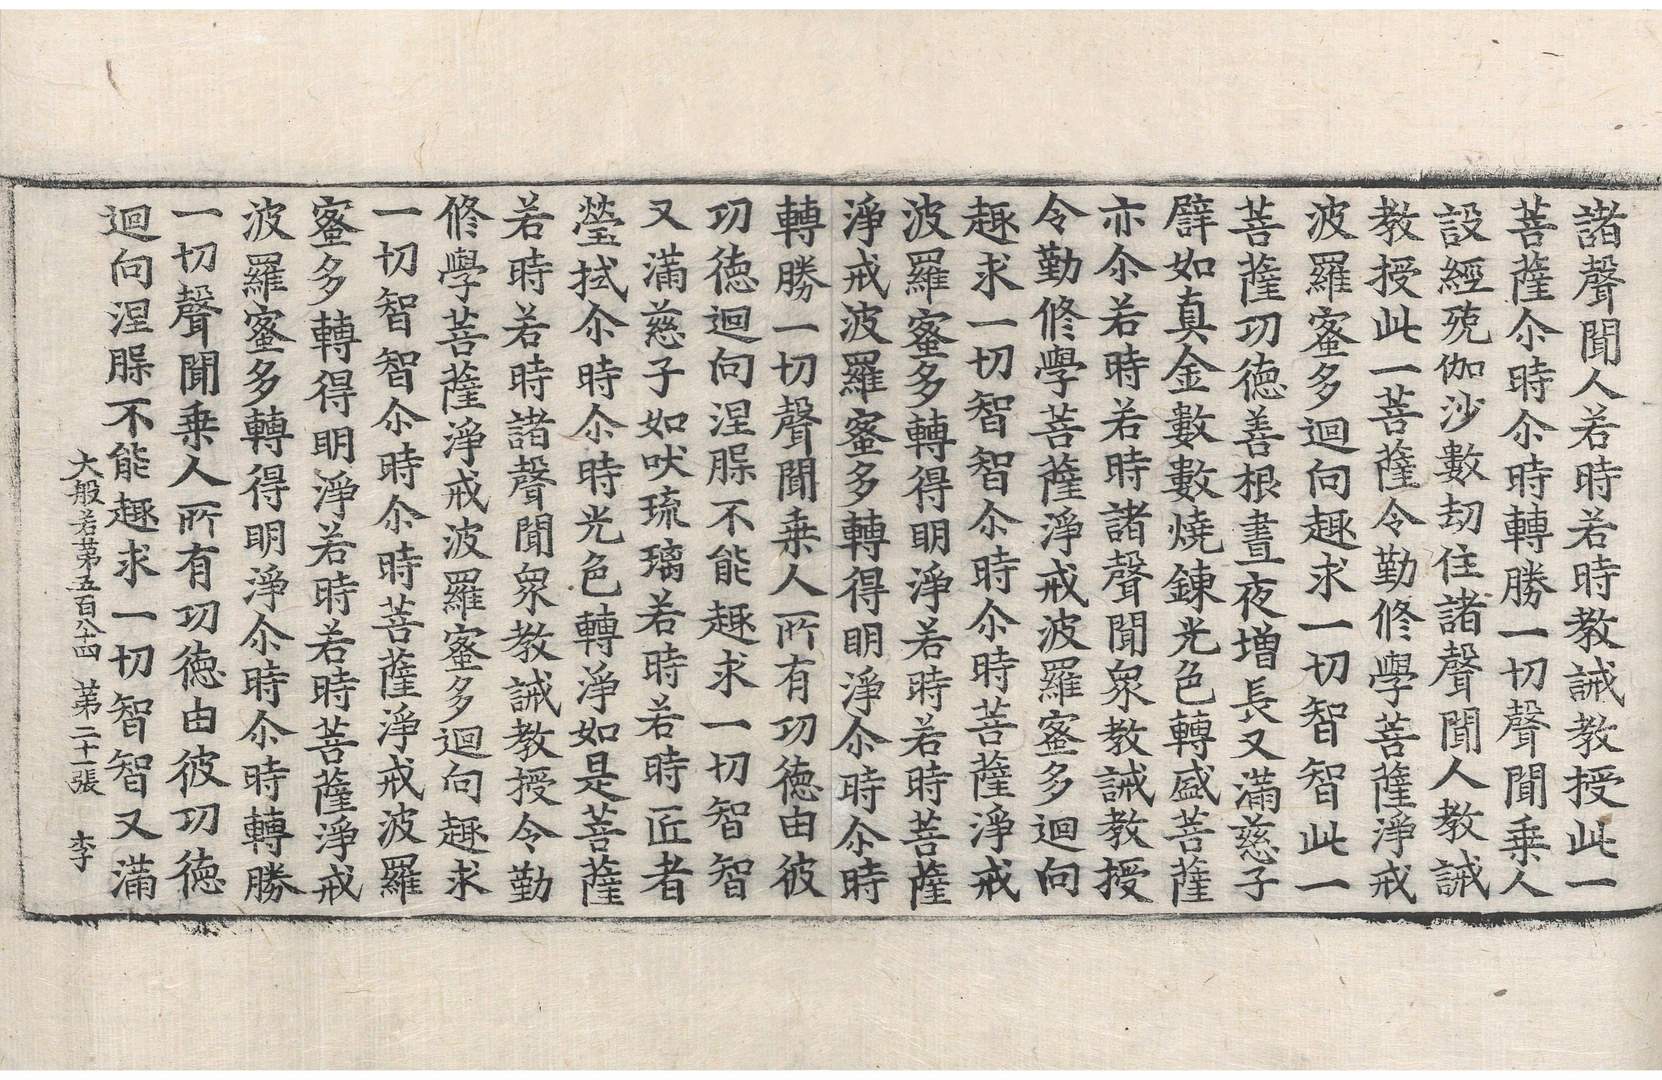 諸聲聞人若時若時教誡教授此一
菩薩尒時尒時轉勝一切聲聞乗人
設經殑伽沙數劫住諸聲聞人教誡
教授此一菩薩令勤修學菩薩淨戒
波羅蜜多迴向趣求一切智智此一
菩薩功德善根晝夜增長又滿慈子
譬如真金數數燒鍊光色轉盛菩薩
亦尒若時若時諸聲聞衆教誡教授
令勤修學菩薩淨戒波羅蜜多迴向
趣求一切智智尒時尒時菩薩淨戒
波羅蜜多轉得明淨若時若時菩薩
淨戒波羅蜜多轉得明淨尒時尒時
轉勝一切聲聞乗人所有功德由彼
功德迴向涅槃不能趣求一切智智
又滿慈子如吠琉璃若時若時匠者
瑩拭尒時尒時光色轉淨如是菩薩
若時若時諸聲聞衆教誡教授令勤
修學菩薩淨戒波羅蜜多迴向趣求
一切智智尒時尒時菩薩淨戒波羅
蜜多轉得明淨若時若時菩薩淨戒
波羅蜜多轉得明淨尒時尒時轉勝
一切聲聞乗人所有功德由彼功德
迴向涅槃不能趣求一切智智又滿
大般若第五百八十四 第二十張 李